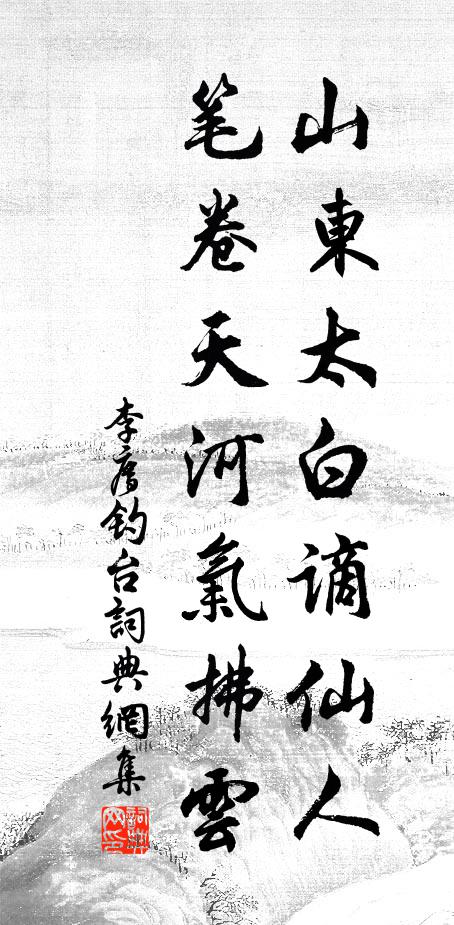 山東太白謫仙人
笔卷天河氣拂雲
李廌钓台詞典網集